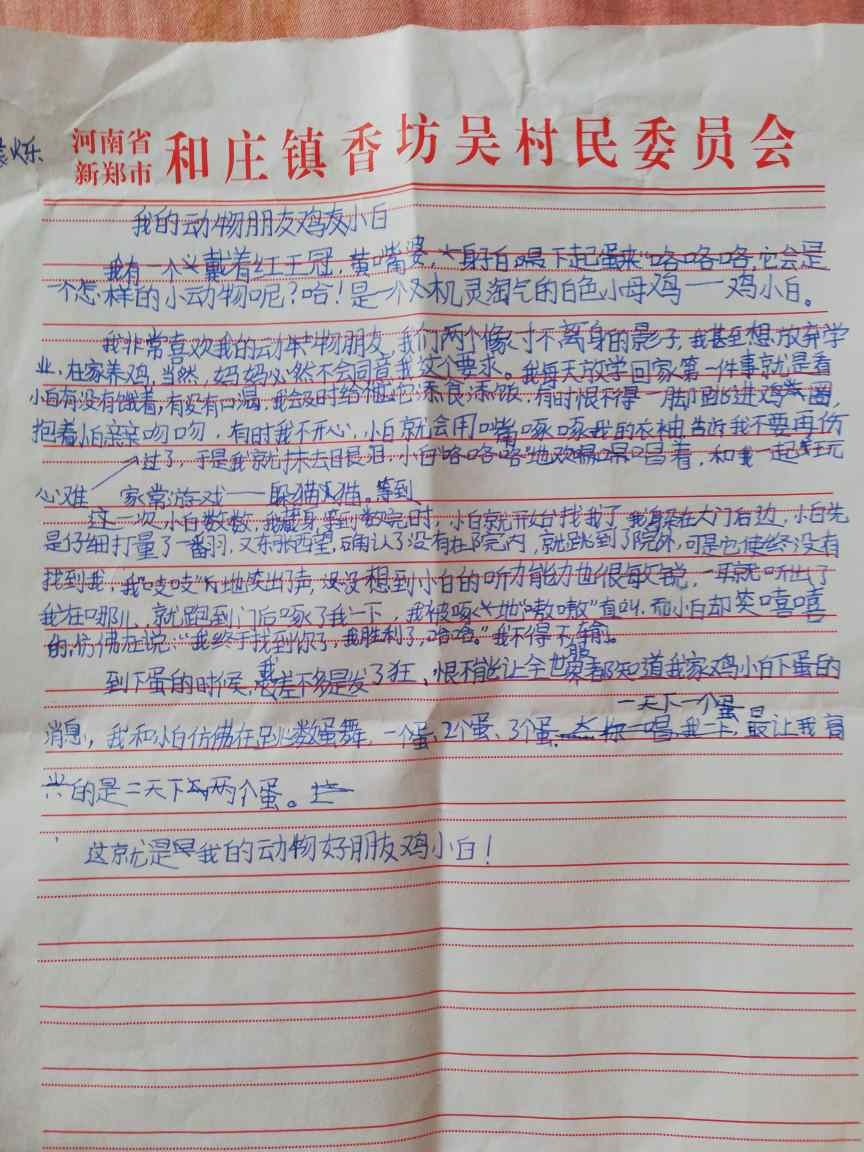 烁
河南省
新郑市
和庄镇香坊吴村民委员会
我的动物朋友鸡友小白
我有一个戴着红王冠，黄嘴婆，一身白 下起蛋来“咯咯咯，它会是
一个怎样的小动物呢？哈！是一个又机灵淘气的白色小母鸡——鸡小白。
我非常喜欢我的动物朋友，我们两个像寸不离身的影子，我甚至想放弃学
业，在家养鸡，当然，妈妈必然不会同意我这个要求。我每天放学回家第一件事就是看
小白有没有饿着，有没有口渴，我会及时给 它添食添饭，有时恨不得一脚 进鸡圈，
抱着小白亲亲吻吻，有时我不开心，小白就会用嘴啄啄我的衣袖 我不要再伤
过了，于是我就抹去目艮泪，小白“咯咯咯”地欢 唱着，和我一起 玩
心难 家常游戏——躲猫猫。等到
这一次，小白数数，我藏身，等到数完时，小白就开始找我了，我躲在大门后边，小白先
是仔细打量了一翻，又东张西望，确认了没有在院内，就跳到了院外，可是它使终没有
找到我，我“吱吱”地笑出了声，没想到小白的听力能力也很敏锐，一耳就听出了
我在哪儿，就跑到门后啄了我一下，我被啄地“嗷嗷”直叫，而小白却笑嘻嘻
的，仿佛在说：“我终于找到你了，我胜利了，咯咯。”我不得不输。
到下蛋的时候，我差不多是发了狂、恨不能让全世界都知道我家鸡小白下蛋的
一天下一个蛋
消息，我和小白仿佛在跳数蛋舞，一个蛋、2个蛋、3个蛋，最让我高
兴的是二天下两个蛋。
这就是我的动物好朋友鸡小白！